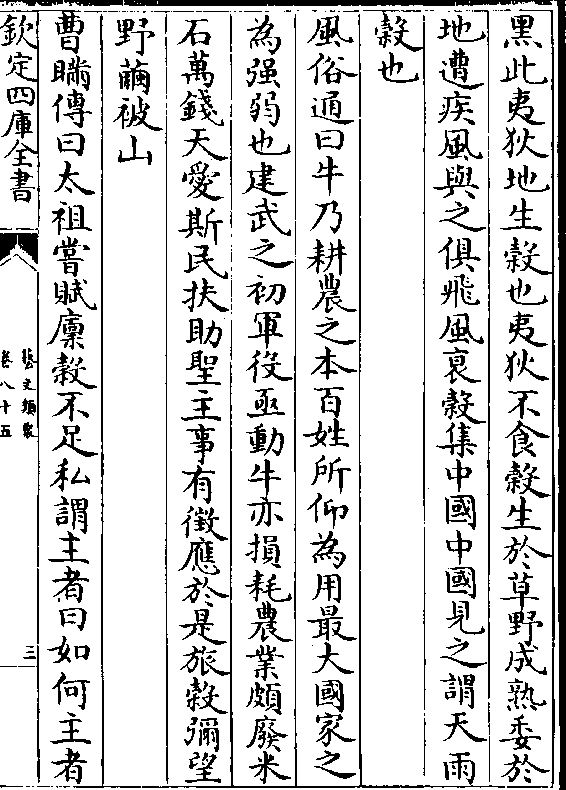 黑此夷狄地生穀也夷狄不食穀生於草野成熟委於
地遭疾風與之俱飛風衰穀集中國中國見之謂天雨
穀也
風俗通曰牛乃耕農之本百姓所仰為用最大國家之
為强弱也建武之初軍役亟動牛亦損耗農業頗廢米
石萬錢天愛斯民扶助聖主事有徵應於是旅穀彌望
野繭被山
曹瞞傳曰太祖嘗賦廩穀不足私謂主者曰如何主者
欽定四庫全書
藝文類聚
卷八十五
三